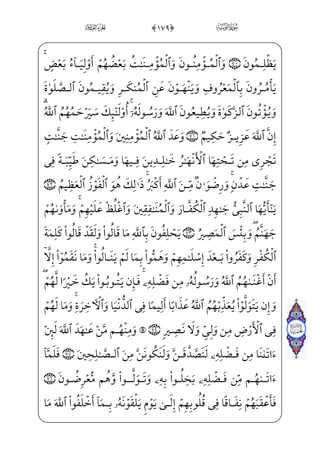 سُورَةُ التَّوْبَةِ ﴿١٧٩﴾ الجُزْءُ العَاشِرُ
يَظْلِمُونَ ۝٧٠ وَٱلْمُؤْمِنُونَ وَٱلْمُؤْمِنَٰتُ بَعْضُهُمْ أَوْلِيَآءُ بَعْضٍ ۚ
يَأْمُرُونَ بِٱلْمَعْرُوفِ وَيَنْهَوْنَ عَنِ ٱلْمُنكَرِ وَيُقِيمُونَ ٱلصَّلَوٰةَ
وَيُؤْتُونَ ٱلزَّكَوٰةَ وَيُطِيعُونَ ٱللَّهَ وَرَسُولَهُۥٓ ۚ أُو۟لَٰٓئِكَ سَيَرْحَمُهُمُ ٱللَّهُ ۗ
إِنَّ ٱللَّهَ عَزِيزٌ حَكِيمٌ ۝٧١ وَعَدَ ٱللَّهُ ٱلْمُؤْمِنِينَ وَٱلْمُؤْمِنَٰتِ جَنَّٰتٍ
تَجْرِى مِن تَحْتِهَا ٱلْأَنْهَٰرُ خَٰلِدِينَ فِيهَا وَمَسَٰكِنَ طَيِّبَةً فِى
جَنَّٰتِ عَدْنٍ ۚ وَرِضْوَٰنٌ مِّنَ ٱللَّهِ أَكْبَرُ ۚ ذَٰلِكَ هُوَ ٱلْفَوْزُ ٱلْعَظِيمُ ۝٧٢
يَٰٓأَيُّهَا ٱلنَّبِىُّ جَٰهِدِ ٱلْكُفَّارَ وَٱلْمُنَٰفِقِينَ وَٱغْلُظْ عَلَيْهِمْ ۚ وَمَأْوَىٰهُمْ
جَهَنَّمُ ۖ وَبِئْسَ ٱلْمَصِيرُ ۝٧٣ يَحْلِفُونَ بِٱللَّهِ مَا قَالُوا۟ وَلَقَدْ قَالُوا۟ كَلِمَةَ
ٱلْكُفْرِ وَكَفَرُوا۟ بَعْدَ إِسْلَٰمِهِمْ وَهَمُّوا۟ بِمَا لَمْ يَنَالُوا۟ ۚ وَمَا نَقَمُوٓا۟ إِلَّآ
أَنْ أَغْنَىٰهُمُ ٱللَّهُ وَرَسُولُهُۥ مِن فَضْلِهِۦ ۚ فَإِن يَتُوبُوا۟ يَكُ خَيْرًا لَّهُمْ ۖ
وَإِن يَتَوَلَّوْا۟ يُعَذِّبْهُمُ ٱللَّهُ عَذَابًا أَلِيمًا فِى ٱلدُّنْيَا وَٱلْءَاخِرَةِ ۚ وَمَا لَهُمْ
فِى ٱلْأَرْضِ مِن وَلِىٍّ وَلَا نَصِيرٍ ۝٧٤ ۞ وَمِنْهُم مَّنْ عَٰهَدَ ٱللَّهَ لَئِنْ
ءَاتَىٰنَا مِن فَضْلِهِۦ لَنَصَّدَّقَنَّ وَلَنَكُونَنَّ مِنَ ٱلصَّٰلِحِينَ ۝٧٥ فَلَمَّآ
ءَاتَىٰهُم مِّن فَضْلِهِۦ بَخِلُوا۟ بِهِۦ وَتَوَلَّوا۟ وَّهُم مُّعْرِضُونَ ۝٧٦
فَأَعْقَبَهُمْ نِفَاقًا فِى قُلُوبِهِمْ إِلَىٰ يَوْمِ يَلْقَوْنَهُۥ بِمَآ أَخْلَفُوا۟ ٱللَّهَ مَا